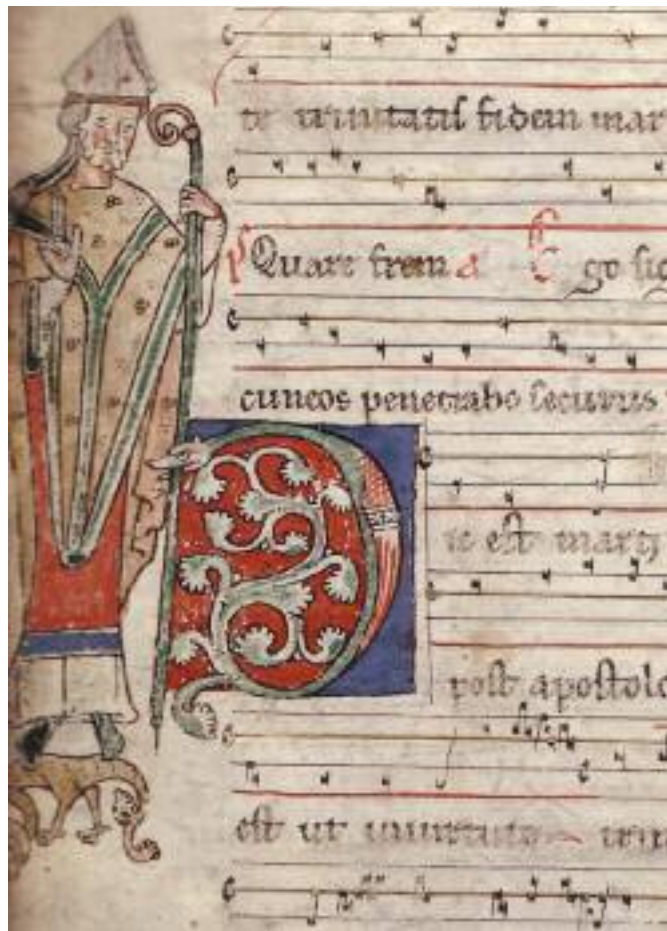 te trinitatis fidem mar
Quare frem a E go sig
cuneos penetrabo securus
ic est marti
post apostolo
est ut